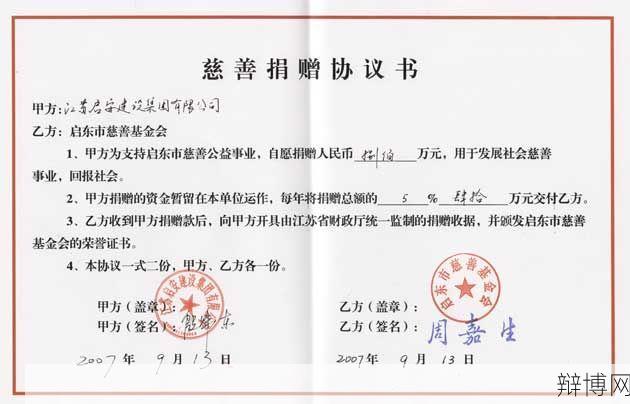 慈善捐赠协议书
甲方：江苏启安建设集团有限公司
乙方：启东市慈善基金会
1、甲方为支持启东市慈善公益事业，自愿捐赠人民币 捌佰 万元，用于发展社会慈善
事业，回报社会。
2、甲方捐赠的资金暂留在本单位运作，每年将捐赠总额的 5 % 肆拾 万元交付乙方。
3、乙方收到甲方捐赠款后，向甲方开具由江苏省财政厅统一监制的捐赠收据，并颁发启东市慈善
基金会的荣誉证书。
4、本协议一式二份，甲方、乙方各一份。
江苏启安建设集团有限公司
启东市慈善基金会
甲方（盖章）： 乙方（盖章）：
甲方（签名）： 东 乙方（签名）：周嘉生
2007 年 9 月 13 日 2007 年 9 月 13 日
辩博网